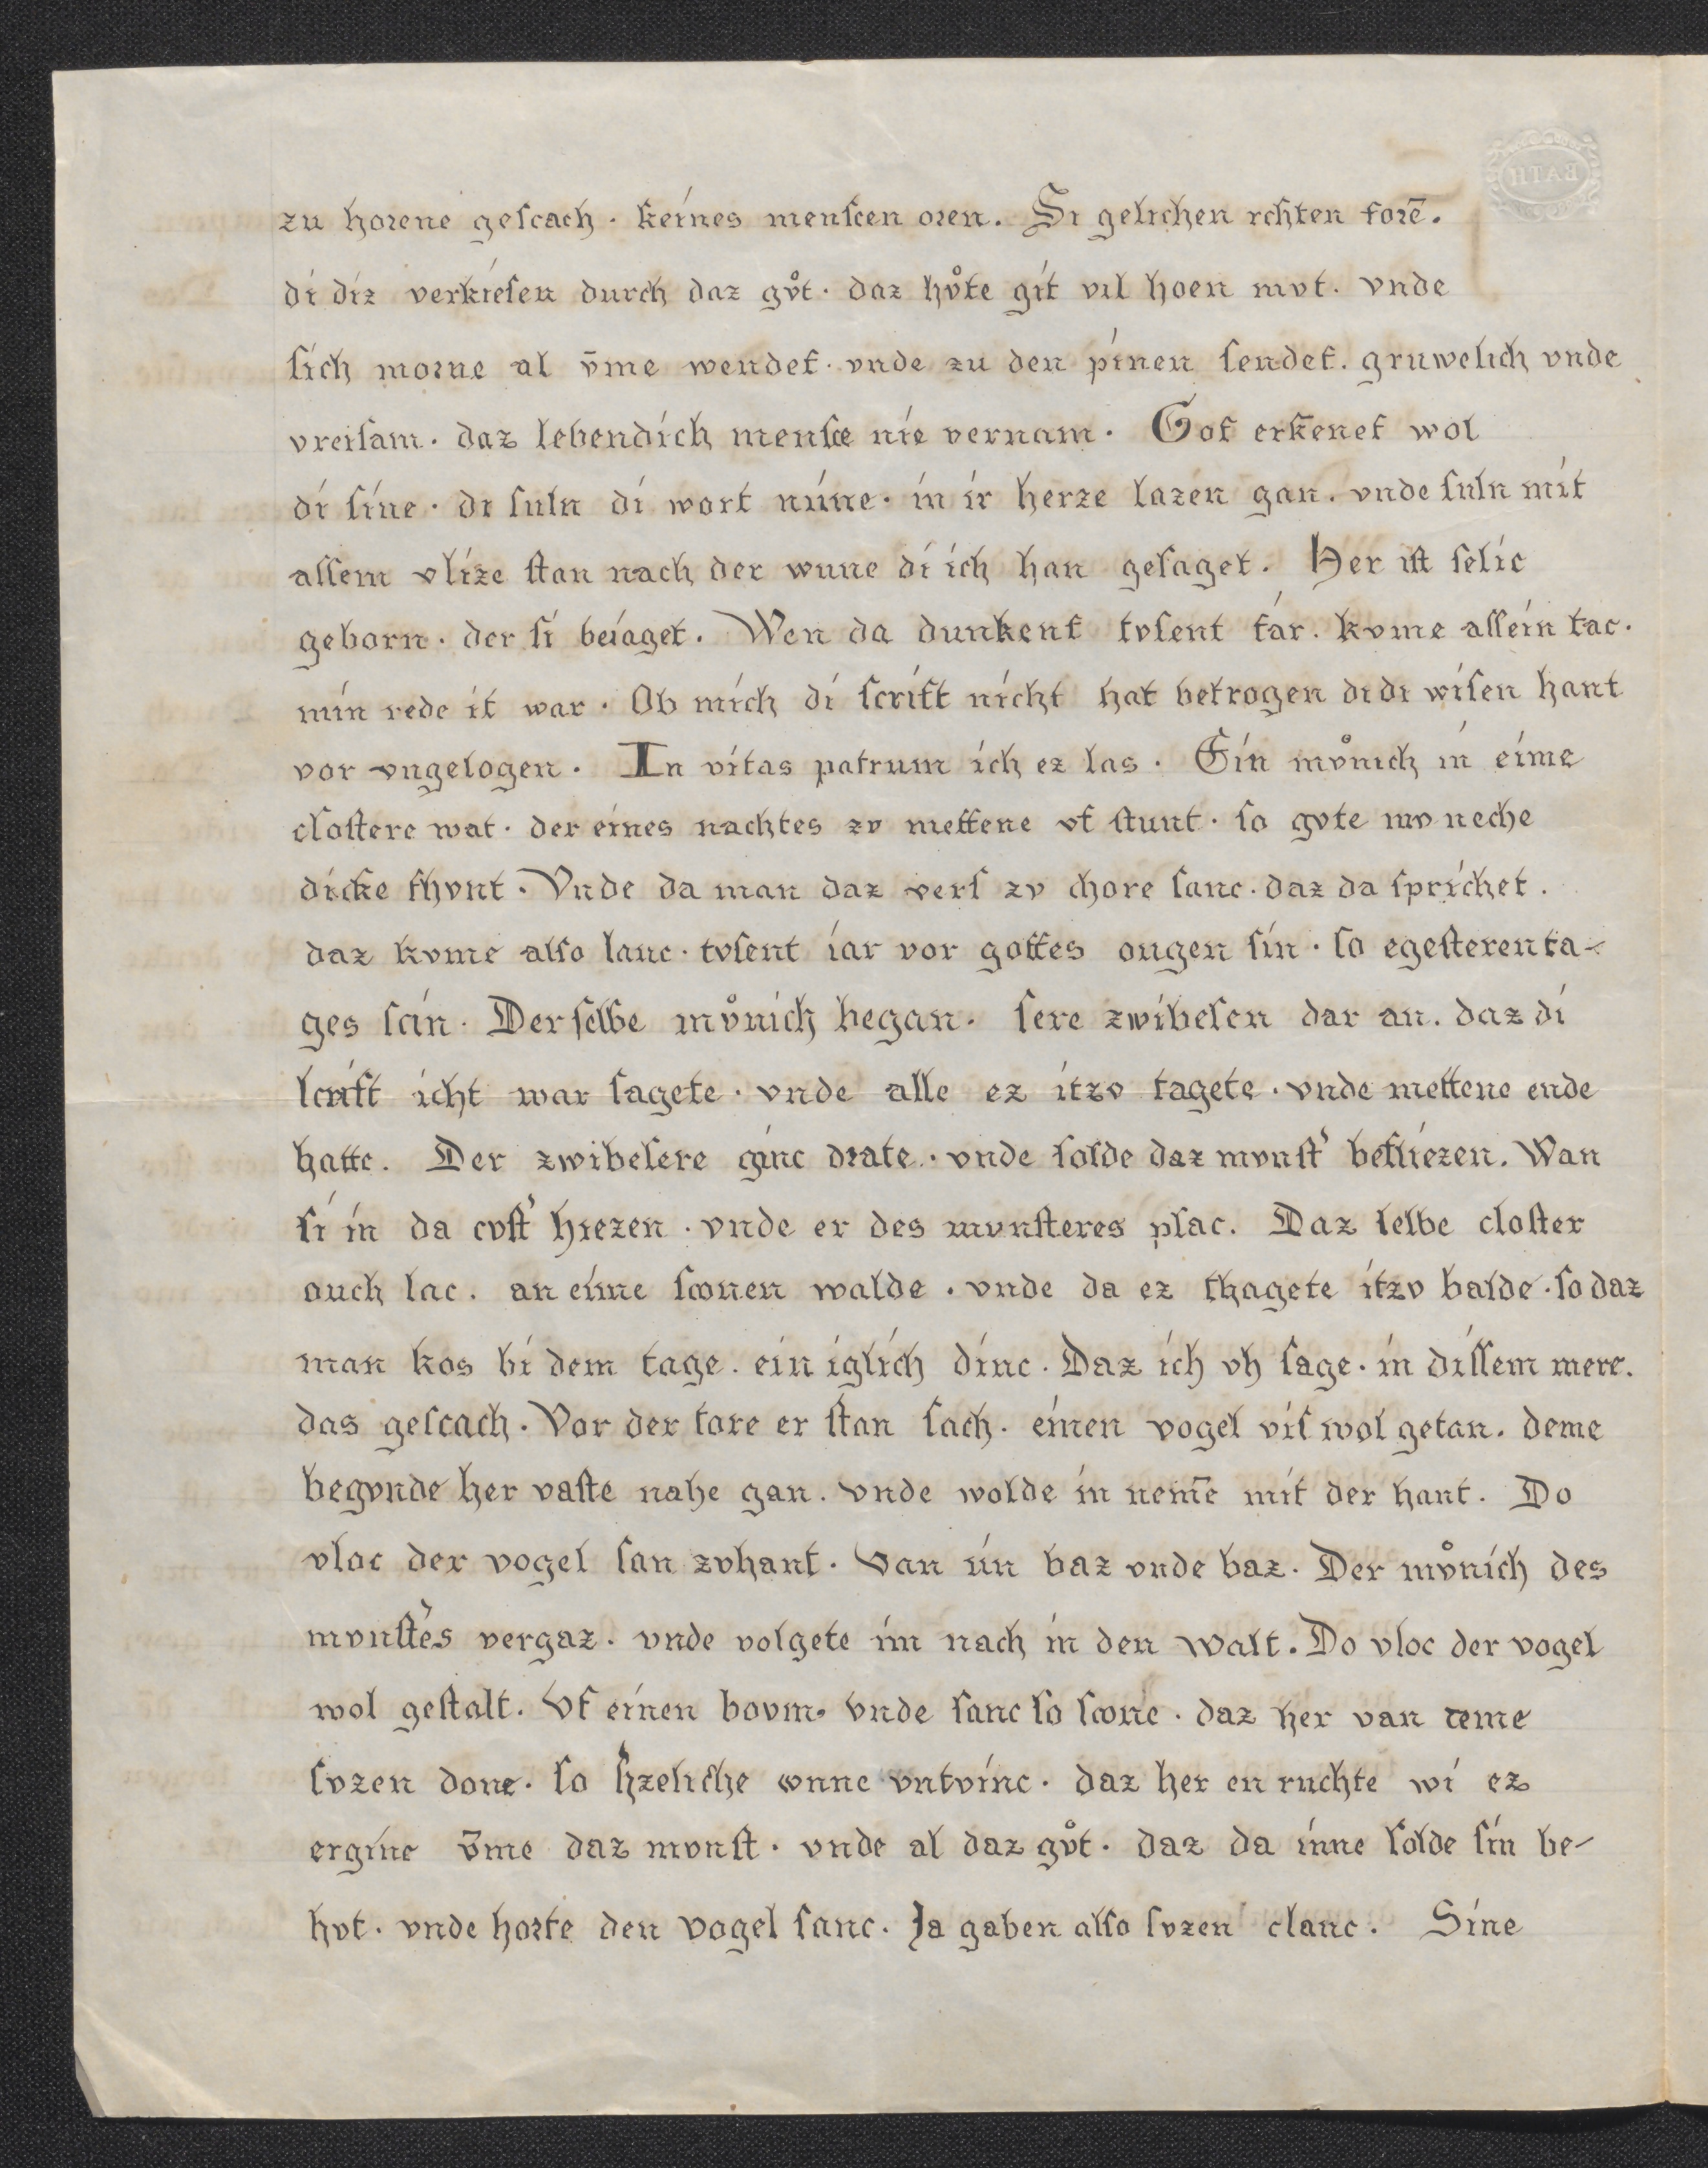 zu horene geſcach · keines menſcen oren. Si gelichen rchten forē.
di diz verkieſen durch daz gůt · daz hůte git vil hoen mvt. vnde
ſich morne al v̄me wendet · vnde zu den pinen ſendet. gruwelich vnde
vreiſam · daz lebendich menſce nie vernam · Got erk̄enet wol
di ſine · di ſuln di wort nune · in ir herze lazen gan. vnde ſuln mit
aſſem vlize ſtan nach der wune di ich han geſaget. Her iſt ſelic
geborn · der ſi beiaget. Wen da dunkent tvſent far. kvme aſſein tac.
min rede it war · Ob mich di ſcrift nicht hat betrogen di di wiſen hant
vor vngelogen. In vitas patrum ich ez las · Ein mv̊nich in eime
cloſtere wat · der eines nachtes zv mettene vf ſtunt · ſo gvte mvneche
dicke thvnt. Vnde da man daz verſ zv chore ſanc · daz da ſprichet.
daz kvme alſo lanc · tvſent iar vor gottes ougen ſin · ſo egeſteren ta-
ges ſcin · Der ſelbe mv̊nich began · ſere zwibelen dar an. daz di
ſcrift icht war ſagete · vnde alle ez itzv tagete · vnde mettene ende
hatte. Der zwibelere ginc drate · vnde ſolde daz mvnſt' beſliezen. Wan
ſi in da cvſt' hiezen · vnde er des mvnſteres plac. Daz ſelbe cloſter
ouch lac. an eime ſconen walde · vnde da ez thagete itzv balde · ſo daz
man kos bi dem tage. ein iglich dinc · Daz ich vh ſage · in diſſem mere.
das geſcach · Vor der tore er ſtan ſach · einen vogel vil wol getan. deme
begvnde her vaſte nahe gan. vnde wolde in nem̄e mit der hant. Do
vloc der vogel ſan zvhant · Van im baz vnde baz · Der mv̊nich des
mvnſt'es vergaz · vnde volgete im nach in den walt. Do vloc der vogel
wol geſtalt. Vf einen bovm. Vnde ſanc ſo ſcone · daz her van deme
ſvzen done · ſo h'zeliche wnne vntvinc · daz her en ruchte wi ez
ergine v̄me daz mvnſt · vnde al daz gv̊t · daz da inne ſolde ſin be-
hvt · vnde horte den vogel ſanc · Ja gaben alſo ſvzen clanc. Sine